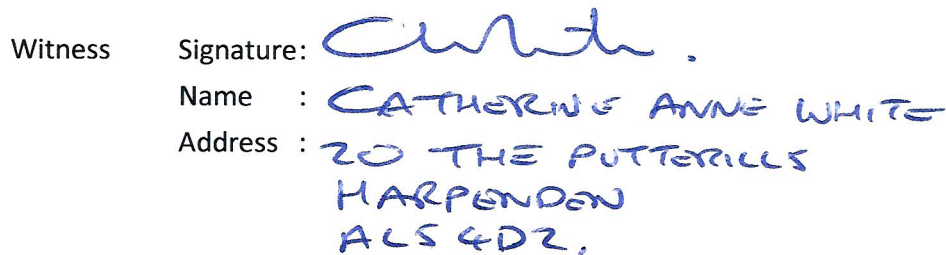 Witness Signature:
Name : CATHERINE ANNE WHITE
Address : 20 THE PUTTERILLS
HARPENDEN
AL5 4DZ,